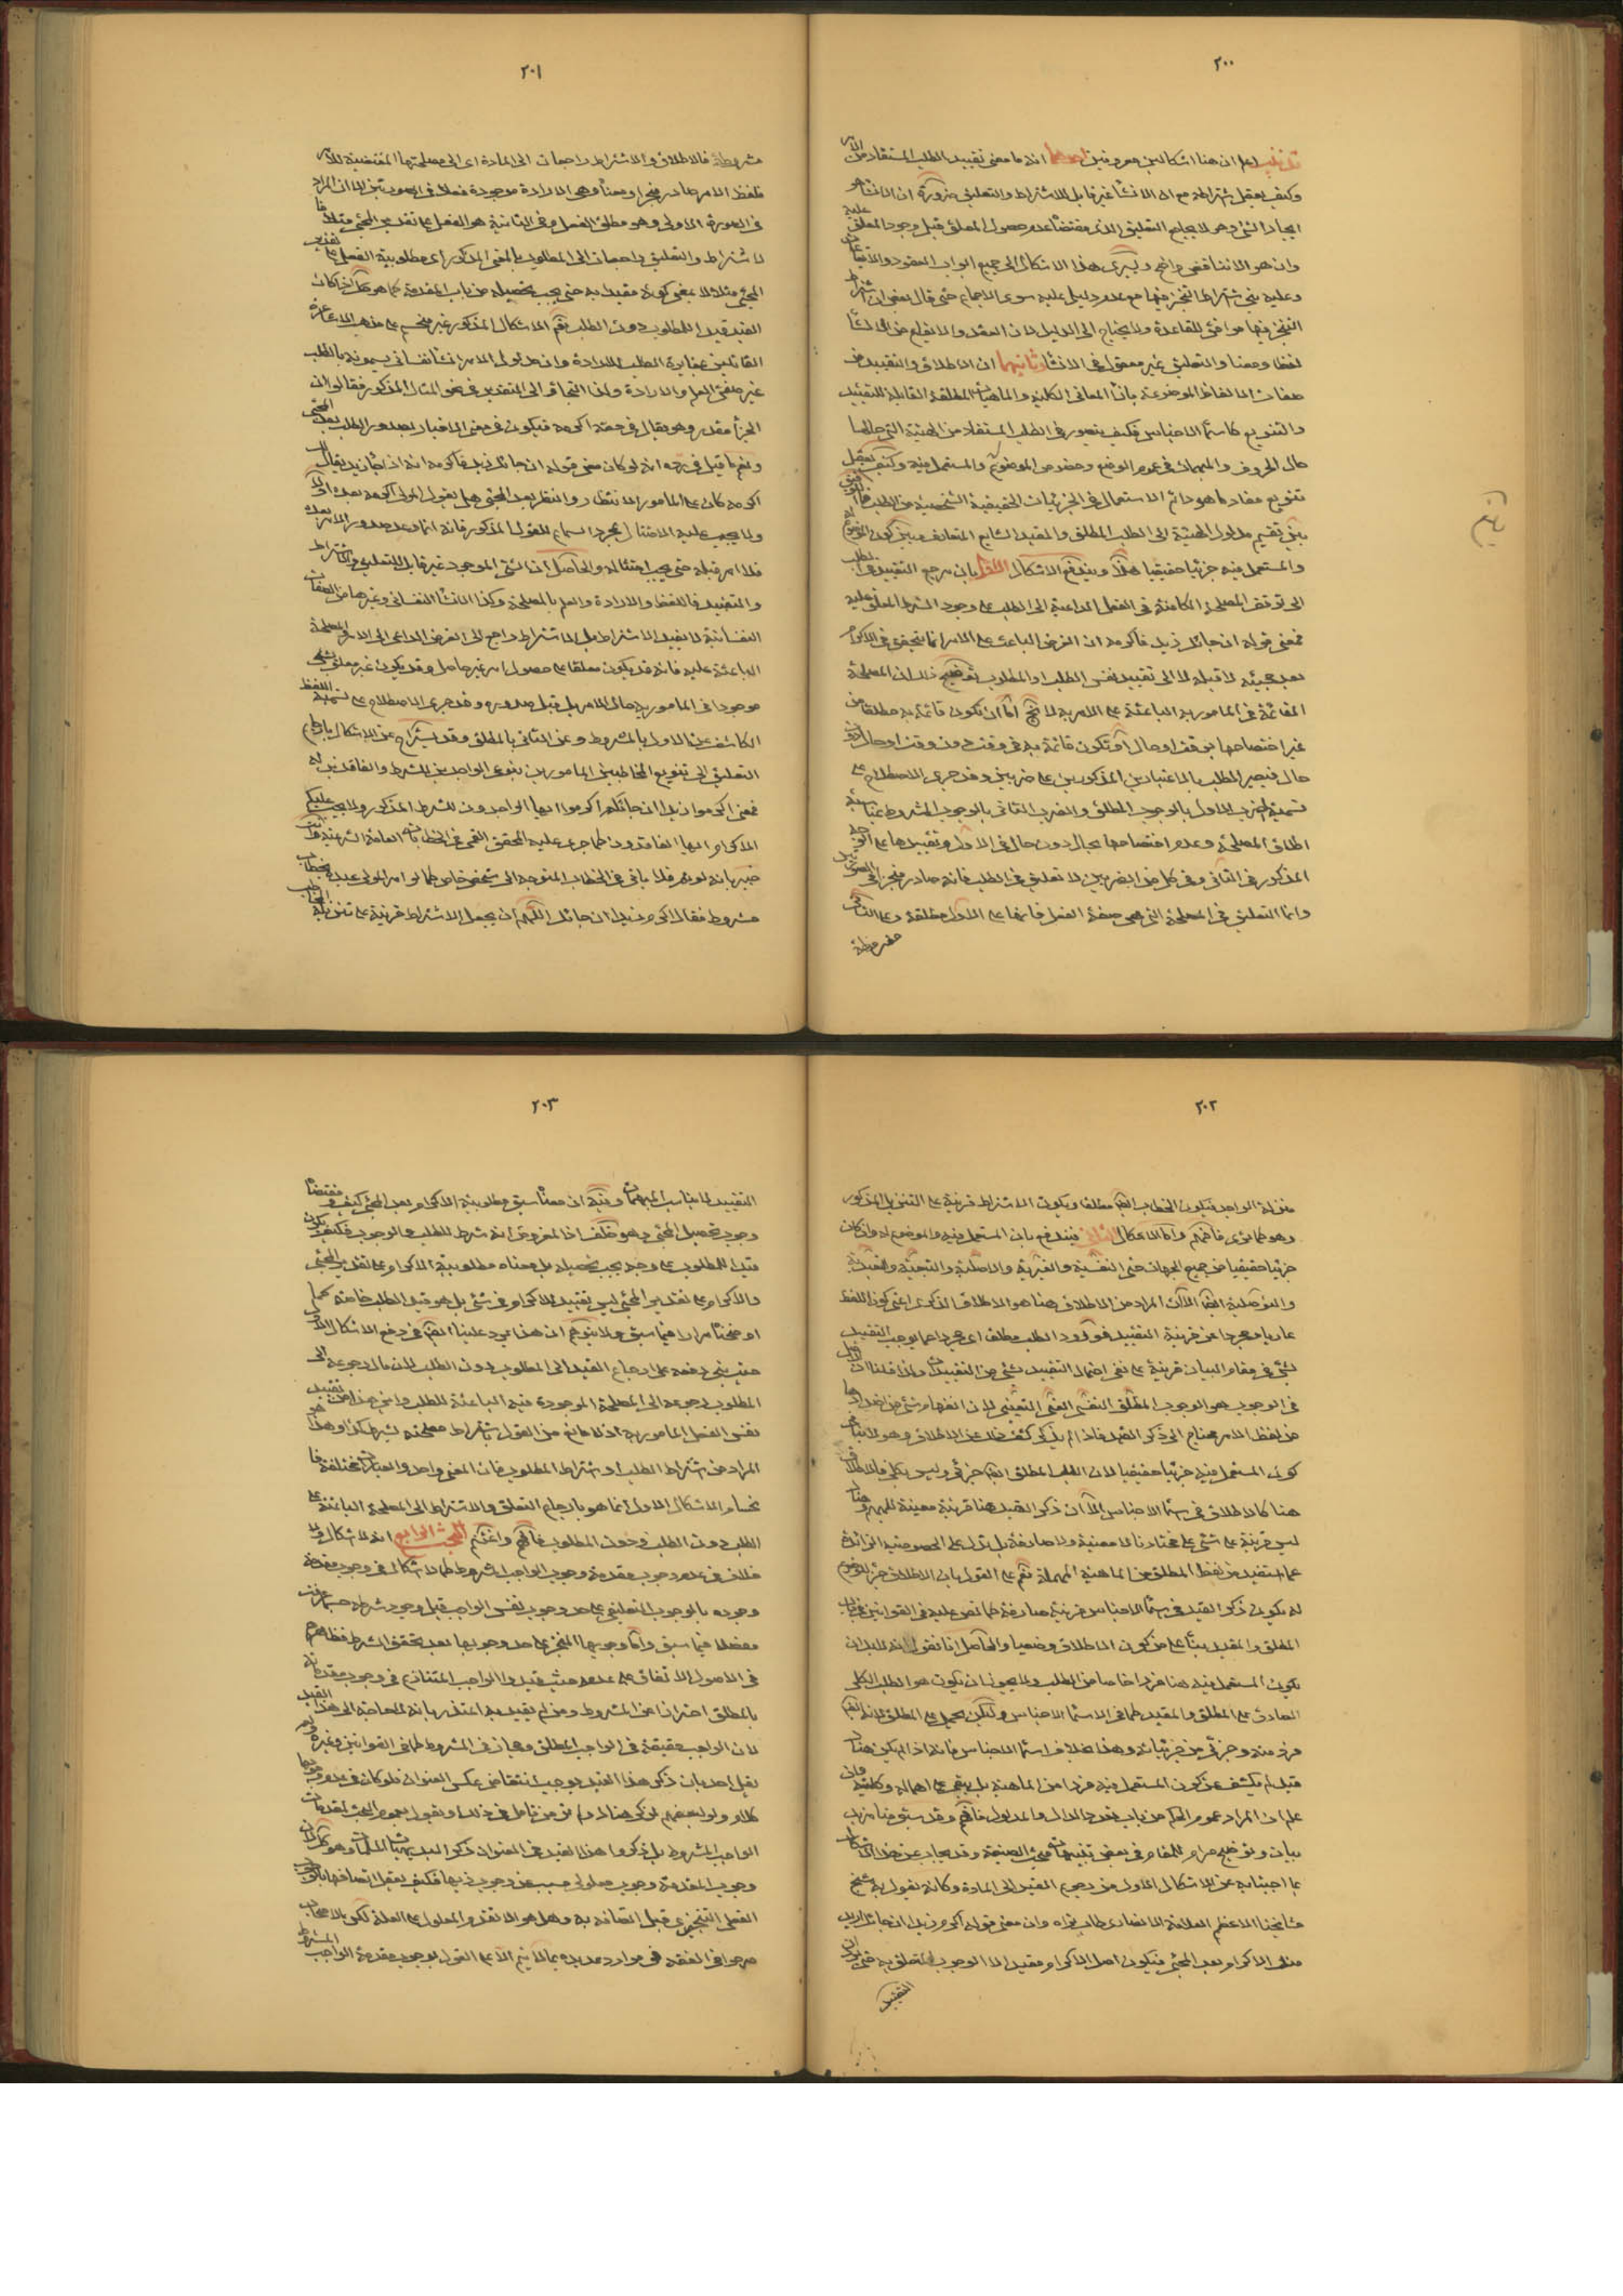 ٢٠٠
اعلم ان هنا اشكالين معروفين احدهما انه ما معنى تقييد الطلب المستفاد من الامر
وكيف يعقل اشتراطه مع ان الانشاء غير قابل للاشتراط والتعليق ضرورة ان الانشاء هو
ايجاد الشئ وهو لا يجامع التعليق الذى مقتضاه عدم حصول المعلق قبل وجود المعلق عليه
وان هو الا تناقض واضح ويسرى هذا الاشكال الى جميع ابواب العقود والايقاعات
وعليه بنى اشتراط التنجز فيها مع عدم دليل عليه سوى الاجماع حتى قال بعض ان اشتراط
التنجز فيها موافق للقاعدة ولا يحتاج الى الدليل لان العقد والايقاع من الانشاء
لفظا ومعنا والتعليق غير معقول فى الانشاء وثانيهما ان الاطلاق والتقييد من
صفات الالفاظ الموضوعة بازاء المعانى الكلية والماهيات المطلقة القابلة للتقييد
والتنويع كاسماء الاجناس فكيف يتصور فى الطلب المستفاد من الهيئة التى حالها
حال الحروف والمبهمات فى عموم الوضع وخصوص الموضوع له والمستعمل فيه وكيف يعقل
تنويع مفاد ما هو دائم الاستعمال فى الجزئيات الحقيقية الشخصية من الطلب
بين تقسيم مدلول الهيئة الى الطلب المطلق والمقيد الشايع المتعارف وبين كون الموضوع له
والمستعمل فيه جزئيا حقيقيا هذا ويندفع الاشكال الاول بان مرجع التقييد فى الطلب
الى توقف المصلحة الكامنة فى الفعل الداعية الى الطلب على وجود الشرط المعلق عليه
فمعنى قوله ان جائك زيد فاكرمه ان الغرض الباعث على الامر انما يتحقق فى الاكرام
بعد مجيئه لا قبله لا الى تقييد نفس الطلب او المطلوب توضيح ذلك ان المصلحة
القائمة فى المامور به الباعثة على الامر به لا تخ اما ان تكون قائمة به مطلقا من
غير اختصاصها بوقت او حال او تكون قائمة به فى وقت دون وقت او حال دون
حال فيصير الطلب بالاعتبارين المذكورين على ضربين وقد جرى الاصطلاح على
تسمية الضرب الاول بالوجوب المطلق والضرب الثانى بالوجوب المشروط
اطلاق المصلحة وعدم اختصاصها بحال دون حال فى الاول وتقييدها على الوجه
المذكور فى الثانى وفى كل من الضربين لا تعليق فى الطلب فانه صادر منجزا فى الصورتين
وانما التعليق فى المصلحة التى هى صفة الفعل فانها على الاول مطلقة وعلى الثانى
مشروطة
٢٠١
مشروطة فالاطلاق والاشتراط راجعان الى المادة اى الى مصلحتها المقتضية للامر
فلفظ الامر صادر منجزا ومعناه وهى الارادة موجودة فعلا فى الصورتين الا ان المراد
فى الصورة الاولى وهو مطلق الفعل وفى الثانية هو الفعل على تقدير المجئ مثلا
لاشتراط والتعليق راجعان الى المطلوب بالمعنى المذكور اى مطلوبية الفعل على تقدير
المجئ مثلا لا بمعنى كونه مقيدا به حتى يجب تحصيله من باب المقدمة كما هو كل اذا كان
القيد قيدا للمطلوب دون الطلب نعم الاشكال المذكور غير منحسم على مذهب الاشاعرة
القائلين بمغايرة الطلب للارادة وان مدلول الامر انشاء نفسانى يسمونه بالطلب
غير صفتى العلم والارادة ولذا التجاؤا الى التقدير فى نحو المثال المذكور فقالوا ان
الجزاء مقدر وهو يقال فى حقه اكرمه فيكون فى معنى الاخبار بصدور الطلب بعد المجئ
ونعم ما قيل فى رده انه لو كان معنى قوله ان جائك زيد فاكرمه انه اذا جاء زيد يقال
اكرمه كان على المامور الانتظار والنظر بعد المجئ هل يقول المولى اكرمه بعد او لا
ولا يجب عليه الامتثال بمجرد السماع للقول المذكور فانه انما وعد صدور الامر بعده
فلا امر قبله حتى يجب امتثاله والحاصل ان الشئ الموجود غير قابل للتعليق والاشتراط
والتقييد فاللفظ والارادة والعلم بالمصلحة وكذا الانشاء النفسانى وغيرها من الصفات
النفسانية لا يقبل الاشتراط بل الاشتراط راجع الى الغرض الداعى الى الامر والمصلحة
الباعثة عليه فانه قد يكون معلقا على حصول امر غير حاصل وقد يكون غير معلق بشئ
موجودا فى المامور به حال الامر بل قبل صدوره وقد جرى الاصطلاح على تسمية اللفظ
الكاشف عن الاول بالمشروط وعن الثانى بالمطلق وقد يستراح عن الاشكال بارجاع
التعليق الى تنويع المخاطبين المامورين بنوعى الواجدين للشرط والفاقدين له
فمعنى اكرموا زيدا ان جائكم اكرموا ايها الواجدون للشرط المذكور ولا يجب عليكم
الاكرام ايها الفاقدون كما جرى عليه المحقق القمى فى الخطابات العامة الشرعية
خبير بانه لو تم فلا ياتى فى الخطاب المتوجه الى شخص خاص كما لو امر المولى عبده بخطاب
مشروط فقال اكرم زيدا ان جائك اللهم ان يجعل الاشتراط قرينة على تنزيل
٢٠٢
منزلة الواجد فيكون الخطاب ايضا مطلقا ويكون الاشتراط قرينة على التنزيل المذكور
وهو كما ترى فافهم واما الاشكال الثانى فيندفع بان المستعمل فيه والموضوع له وان كان
جزئيا حقيقيا من جميع الجهات حتى النفسية والغيرية والاصلية والتبعية والتعبدية
والتوصلية ايضا الا ان المراد من الاطلاق هنا هو الاطلاق الذكرى اعنى كون اللفظ
عاريا ومجردا عن قرينة التقييد فورود الطلب مطلقا اى مجردا عما يوجب التقييد
بشئ فى مقام البيان قرينة على نفى احتمال التقييد بشئ من التقييدات ولذا قلنا ان الاصل
فى الوجوب هو الوجوب المطلق النفسى العينى التعيينى لان انفهام شئ من اضدادها
من لفظ الامر محتاج الى ذكر القيد فاذا لم يذكر كشف ذلك عن الاطلاق وهو لا ينافى
كون المستعمل فيه جزئيا حقيقيا لان الطلب المطلق ايضا جزئى وليس بكلى فالاطلاق
هنا كالاطلاق فى اسماء الاجناس الا ان ذكر القيد هنا قرينة معينة للمبهم وهناك
ليس قرينة على شئ على مختارنا لا معينة ولا صارفة بل يدل على الخصوصية الزائدة
عما استفيد من لفظ المطلق من الماهية المهملة نعم على القول بان الاطلاق جزء للموضوع
له يكون ذكر القيد فى اسماء الاجناس قرينة صارفة كما نص عليه فى القوانين فى باب
المطلق والمقيد بناء على كون الاطلاق وضعيا والحاصل انا نقول انه لا بد ان
يكون المستعمل فيه هنا فردا خاصا من الطلب ولا يجوز ان يكون هو الطلب الكلى
الصادق على المطلق والمقيد كما فى اسماء الاجناس ولكن يحمل على المطلق لانه ايضا
فرد منه وجزئى من جزئياته وهذا بخلاف اسماء الاجناس فانه اذا لم يكن هناك
قيد لم يكشف عن كون المستعمل فيه فردا من الماهية بل يبقى على اهماله وكليته فان
علم ان المراد عموم الحكم من باب تعدد الدال والمدلول فافهم وقد سبق منا مزيد
بيان وتوضيح مرام للمقام فى بعض تنبيهات مبحث الصيغة وقد يجاب عن هذا الاشكال
بما اجبنا به عن الاشكال الاول من رجوع القيد الى المادة وكانه يقول به شيخ
مشايخنا الاعظم العلامة الانصارى طاب ثراه وان معنى قوله اكرم زيدا ان جائك اريد
منك الاكرام بعد المجئ فيكون اصل الاكرام مقيدا لا الوجوب المتعلق به حتى
التقييد
٢٠٣
التقييد لما يناسب المبهمات وفيه ان معناه سبق مطلوبية الاكرام بعد المجئ كيف ومقتضاه
وجوب تحصيل المجئ وهو خلف اذ المفروض انه شرط للطلب والوجوب فكيف يكون
قيدا للمطلوب على وجه يجب تحصيله بل معناه مطلوبية الاكرام على تقدير المجئ
والاكرام على تقدير المجئ ليس تقييد الاكرام فى شئ بل هو قيد الطلب خاصة كما
اوضحناه مرارا فيما سبق ولا يتوهم ان هذا يرد علينا ايضا فى دفع الاشكال الاول
حيث بنى دفعه على ارجاع القيد الى المطلوب دون الطلب لان مآل رجوعه الى
المطلوب رجوعه الى المصلحة الموجودة فيه الباعثة للطلب واين هذا من تقييد
نفس الفعل المامور به اذ لا مانع من القول باشتراط مصلحته بشرط كذا وهذا هو
المراد من اشتراط الطلب او اشتراط المطلوب فان المعنى واحد والعبارات مختلفة
نحسام الاشكال الاول انما هو بارجاع التعلق والاشتراط الى المصلحة الباعثة على
الطلب دون الطلب ودون المطلوب فافهم واغتنم المبحث الرابع انه لا اشكال ولا
خلاف فى عدم وجوب مقدمة وجوب الواجب المشروط كما لا اشكال فى وجوب مقدمة
وجوده بالوجوب التعليقى على حد وجوب نفس الواجب قبل وجود شرطه حسبما عرفت
مفصلا فيما سبق واما وجوبها المنجز على حد وجوبها بعد تحقق الشرط فظاهرهم
فى الاصول الاتفاق على عدمه حيث قيدوا الواجب المتنازع فى وجوب مقدماته
بالمطلق احترازا عن المشروط ومن لم يقيد به اعتذر بانه لا حاجة الى هذا القيد
لان الواجب حقيقة فى الواجب المطلق ومجاز فى المشروط كما فى القوانين وغيره ولم
يقل احد بان ذكر هذا القيد يوجب انتقاض عكس العنوان فلو كان فى عدم وجوبها
كلام ولو لبعضهم لذكر هنالك ولم نر من تامل فى ذلك او يقول بعموم البحث لمقدمات
الواجب المشروط بل ذكروا هذا القيد فى العنوان ذكر البديهيات المسلمات وهو كل لان
وجوب المقدمة وجوب معلولى مسبب عن وجوب ذيها فكيف يعقل اتصافها بالوجوب
الفعلى التنجيزى قبل اتصافه به وهل هو الا تقدم المعلول على العلة لكن الاصحاب
صرحوا فى الفقه فى موارد عديدة بما لا يتم الا على القول بوجوب مقدمة الواجب المشروط